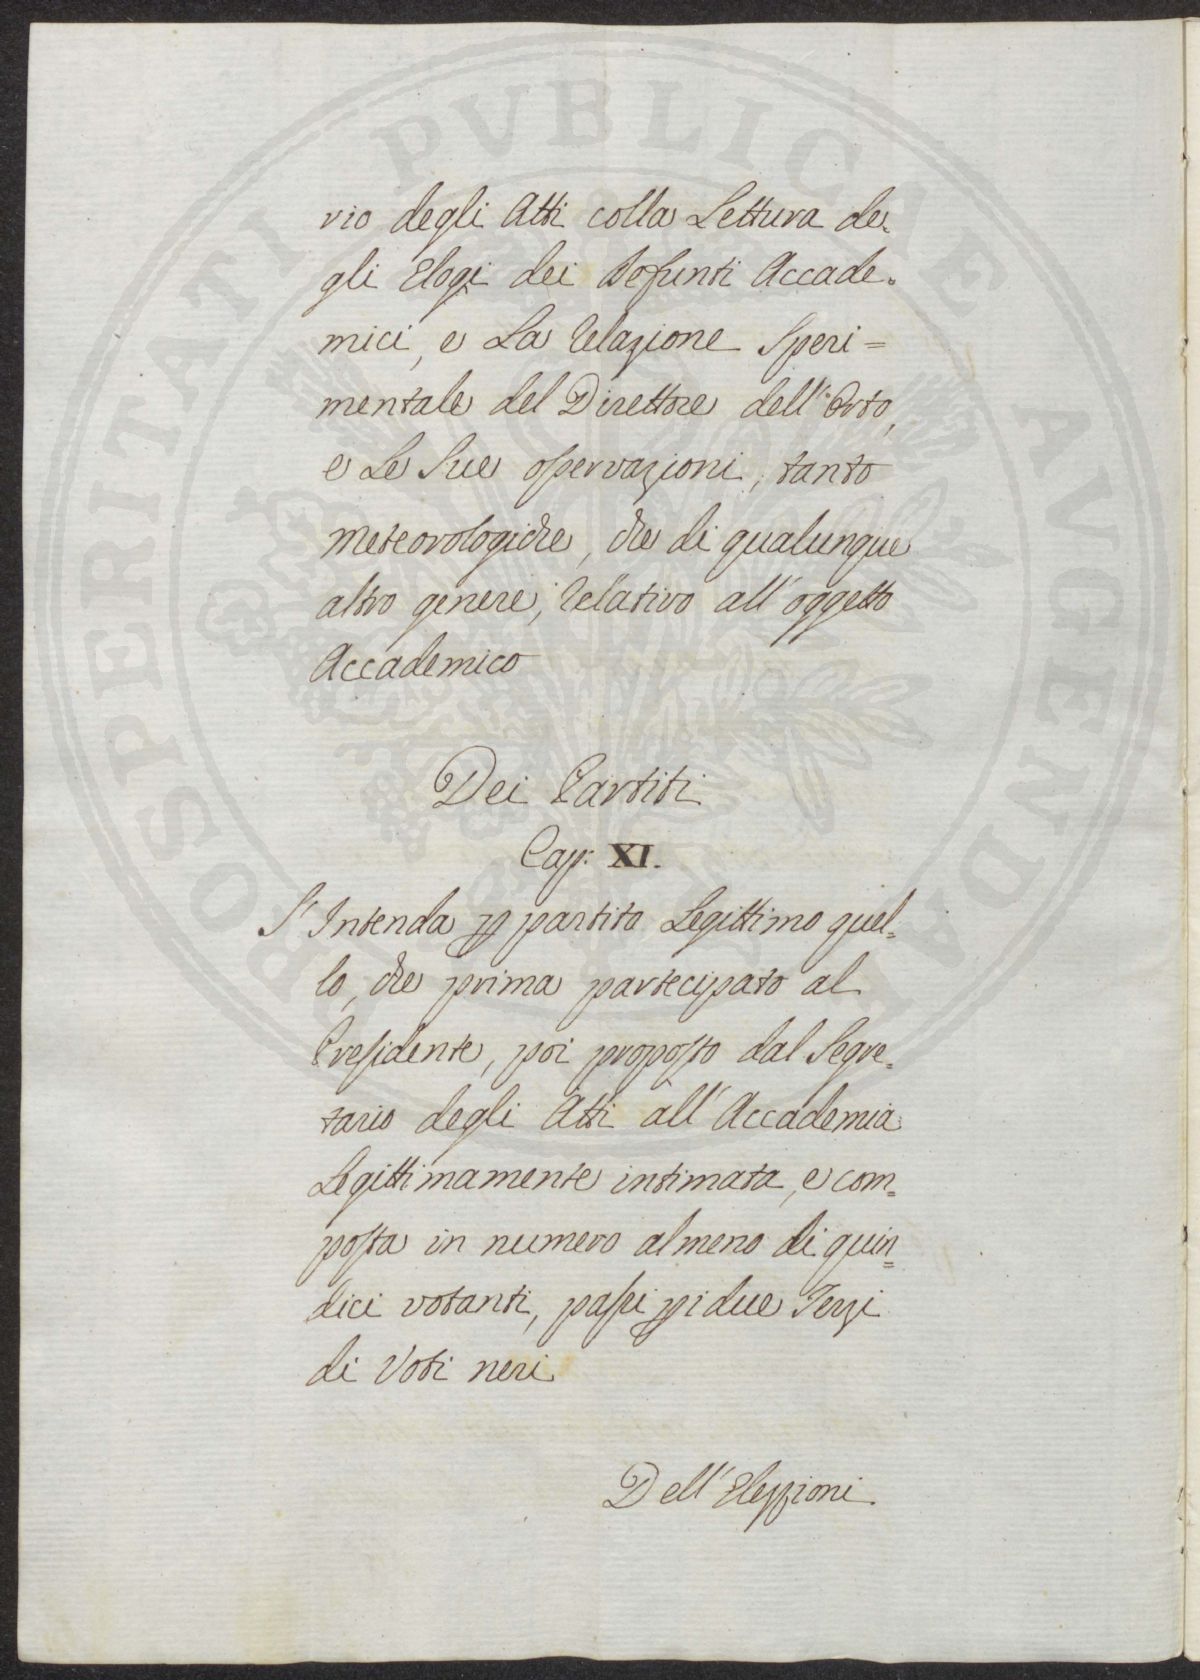 PROSPERITATI PVBLICAE AVGENDAE
rio degli Atti colla Lettura de=
gli Elogi dei Defunti Accade=
mici, e La Relazione Speri=
mentale del Direttore dell'Orto,
e Le Sue osservazioni, tanto
meteorologiche, che di qualunque
altro genere, relativo all'oggetto
Accademico
Dei Partiti
Cap: XI.
S'Intenda p partito Legittimo quel=
lo, che prima partecipato al
Presidente, poi proposto dal Segre=
tario degli Atti all'Accademia
Legittimamente intimata, e com=
posta in numero almeno di quin=
dici votanti, passi p i due Terzi
di Voti neri
Dell'Elezzioni